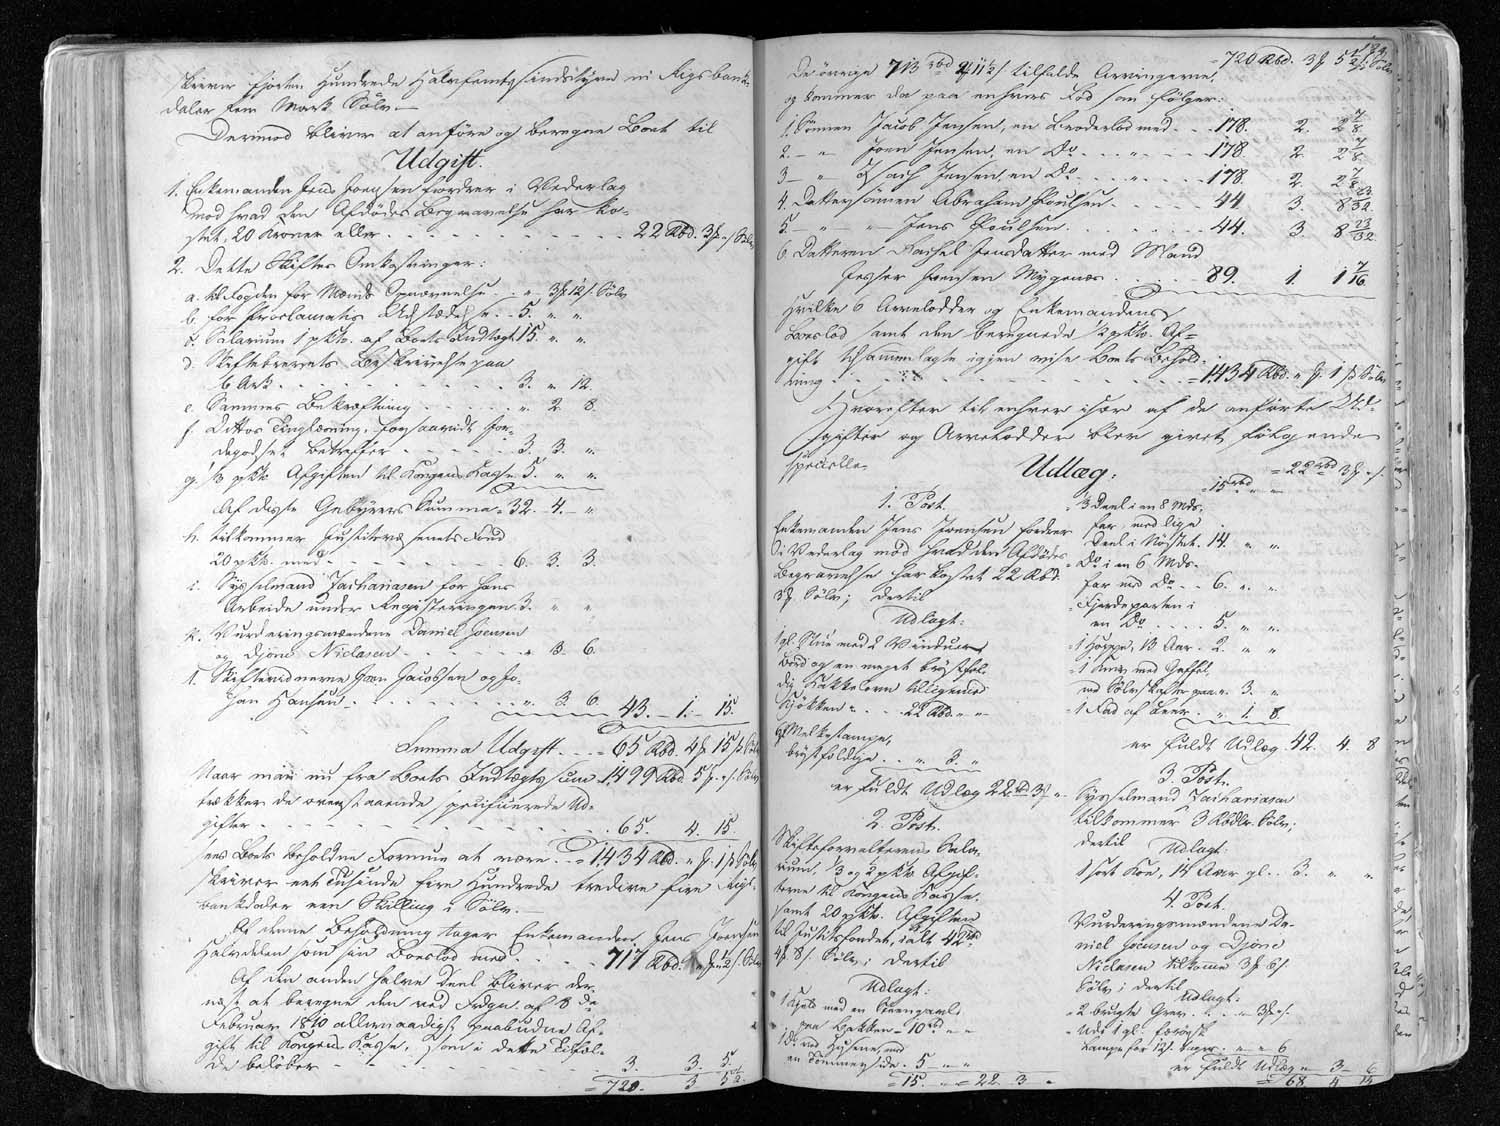 skriver fjorten Hundrede Halvfemtsindstyve ni Rigsbank-
daler fem Mark Sölv.
Derimod bliver at anföre og beregne Boet til
Udgift.
1. Enkemanden Jens Joensen fordrer i Vederlag
mod hvad den Afdödes Begravelse har ko-
stet, 20 Kroner eller 22 Rbd. 3 ƒ " s Sölv
2. Dette Skiftes Omkostninger:
a. til Fogden for Mænds Opnævnelse " 3ƒ 12 s. Sölv
b. for Proclamatis Udstædelse 5. " "
c. Salarium 1 pkt. af Boets Indtægt 15. " "
d. Skiftebrevets Beskrivelse paa
6 Ark 3. " 12.
e. Sammes Bekræftning " 2. 8.
f. Dittos Tinglæsning, forsaavidt Jor-
degodset betreffer 3. 3. "
g. 1/3 pkt. Afgiften til Kongens Kasse 5. " "
Af disse Gebyrers Summa 32. 4. "
h. tilkommer Justitsvæsenets Fond
20 pkt. med 6. 3. 3.
i. Sysselmand Zachariasen for hans
Arbeide under Registeringen 3. " "
k. Vurderingsmændene Daniel Joensen
og Djöne Niclasen " 3. 6.
l. Skiftevidnerne Joen Jacobsen og Jo-
han Hansen " 3. 6. 43. 1. 15.
Summa Udgift 65 Rbd. 4 ƒ 15 s Sölv
Naar man nu fra Boets Indtægts sum 1499 Rbd 5 ƒ. " s. Sölv
trækker de ovenstaaende specificerede Ud-
gifter 65. 4. 15.
sees Boets beholdne Formue at være 1434 Rbd. " ƒ. 1 s Sölv
skriver eet Tusinde fire Hundrede tredive fire Rigs-
bankdaler een Skilling i Sölv.
Af denne Beholdning tager Enkemanden Jens Joensen
Halvdelen som sin Boeslod med 717 Rbd. " ƒ " 1/2 s. Sölv
Af den anden halve Deel bliver der-
næst at beregne den ved Frdgn. af 8de
Februar 1810 allernaadigst paabudne Af-
gift til Kongens Kasse, som i dette Tilfæl-
de belöber 3. 3. 5.
720. 3 5 1/2
720 Rbd. 3 ƒ 5 1/2 s Sölv
De övrige 713 Rbd 2 ƒ 11 1/2 s tilfalde Arvingerne,
og kommer da paa enhvers Lod som fölger:
1. Sönnen Jacob Jensen, en Broderlod med 178. 2. 2 7/8
2. " Joen Jensen, en Do 178. 2. 2 7/8
3. " Isach Jensen, en Do 178. 2. 2 7/8
4. Dattersönnen Abraham Poulsen 44 3. 8 23/32
5. " Jens Poulsen 44. 3. 8 23/32
6. Datteren Rachel Jensdatter med Mand
Jesper Joensen Mygenæs 89. 1. 1 7/16
Hvilke 6 Arvelodder og Enkemandens
Boeslod samt den beregnede 1/2 pkts. Af-
gift tilsammenlagte igjen vise Boets Behold-
ning 1434 Rbd. " ƒ. 1 s Sölv
Hvorefter til enhver især af de anförte Ud-
gifter og Arvelodder blev givet fölgende
specielle
Udlæg:
1. Post.
Enkemanden Jens Joensen fordrer
i Vederlag mod hvad den Afdödes
Begravelse har kostet 22 Rbd.
3 ƒ Sölv; dertil
Udlagt:
1 gl. Stue med 2 Vinduer
Bord og en meget bröstfæl-
dig Kakkelovn tilligemed
Kjökken 22 Rbd. " "
1 gl. Melkestampe,
bröstfældige " 3. "
er fuldt Udlæg 22 Rbd 3 ƒ "
2. Post.
Skifteforvalterens Sala-
rium, 1/3 og 2 pkts Afgif-
terne til Kongens Kasse,
samt 20 pkts. Afgiften
til Justitsfondet, ialt 42 Rbd
4 ƒ 8 s. Sölv; dertil
Udlagt:
1 Hjeld med en Steengavl
paa Bakken 10 Rbd " "
1 Do ved Husene, med
en Tömmerside 5 " "
15. " " 22. 3 "
22 Rbd 3 ƒ " s.
15 Rbd " "
1/3 Deel i en 8 Mds.
far med lige
Deel i Nöstet 14. " "
Do i en 6 Mds.
far med Do 6. " "
Fjerdeparten i
en Do 5. " "
1 Hoppe, 13 Aar 2. " "
1 Kniv med Gaffel,
med Sölvskafter paa " 3. "
1 Fad af Leer " 1. 8.
er fuldt Udlæg 42. 4. 8
3. Post.
Sysselmand Zachariasen
tilkommer 3 Rbdlr. Sölv;
dertil
Udlagt:
1 sort Koe, 14 Aar gl. 3. " "
4. Post.
Vurderingsmændene Da-
niel Joensen og Djöne
Niclasen tilkomme 3 ƒ 6 s.
Sölv; dertil
Udlagt:
2 brugte Grev " 3 ƒ " s.
Udi 1 gl. færöisk
Lampe for 12 s. tager " " 6
er fuldt Udlæg " 3 6
68 4 14